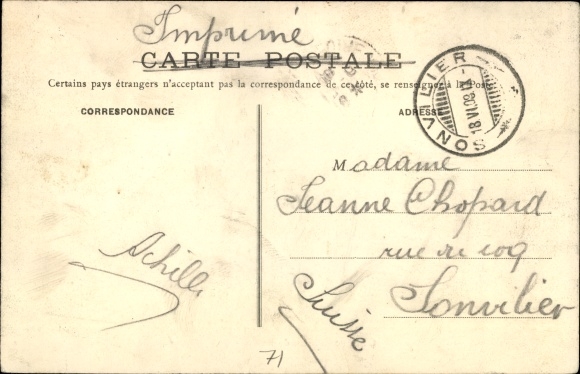 Imprimé
CARTE POSTALE
Certains pays étrangers n'acceptant pas la correspondance de ce côté, se renseigner à la Poste
CORRESPONDANCE
ADRESSE
SONVILIER
18 VI 08
Madame
Jeanne Chopard
rue du coq
Sonvilier
Suisse
Achille
71